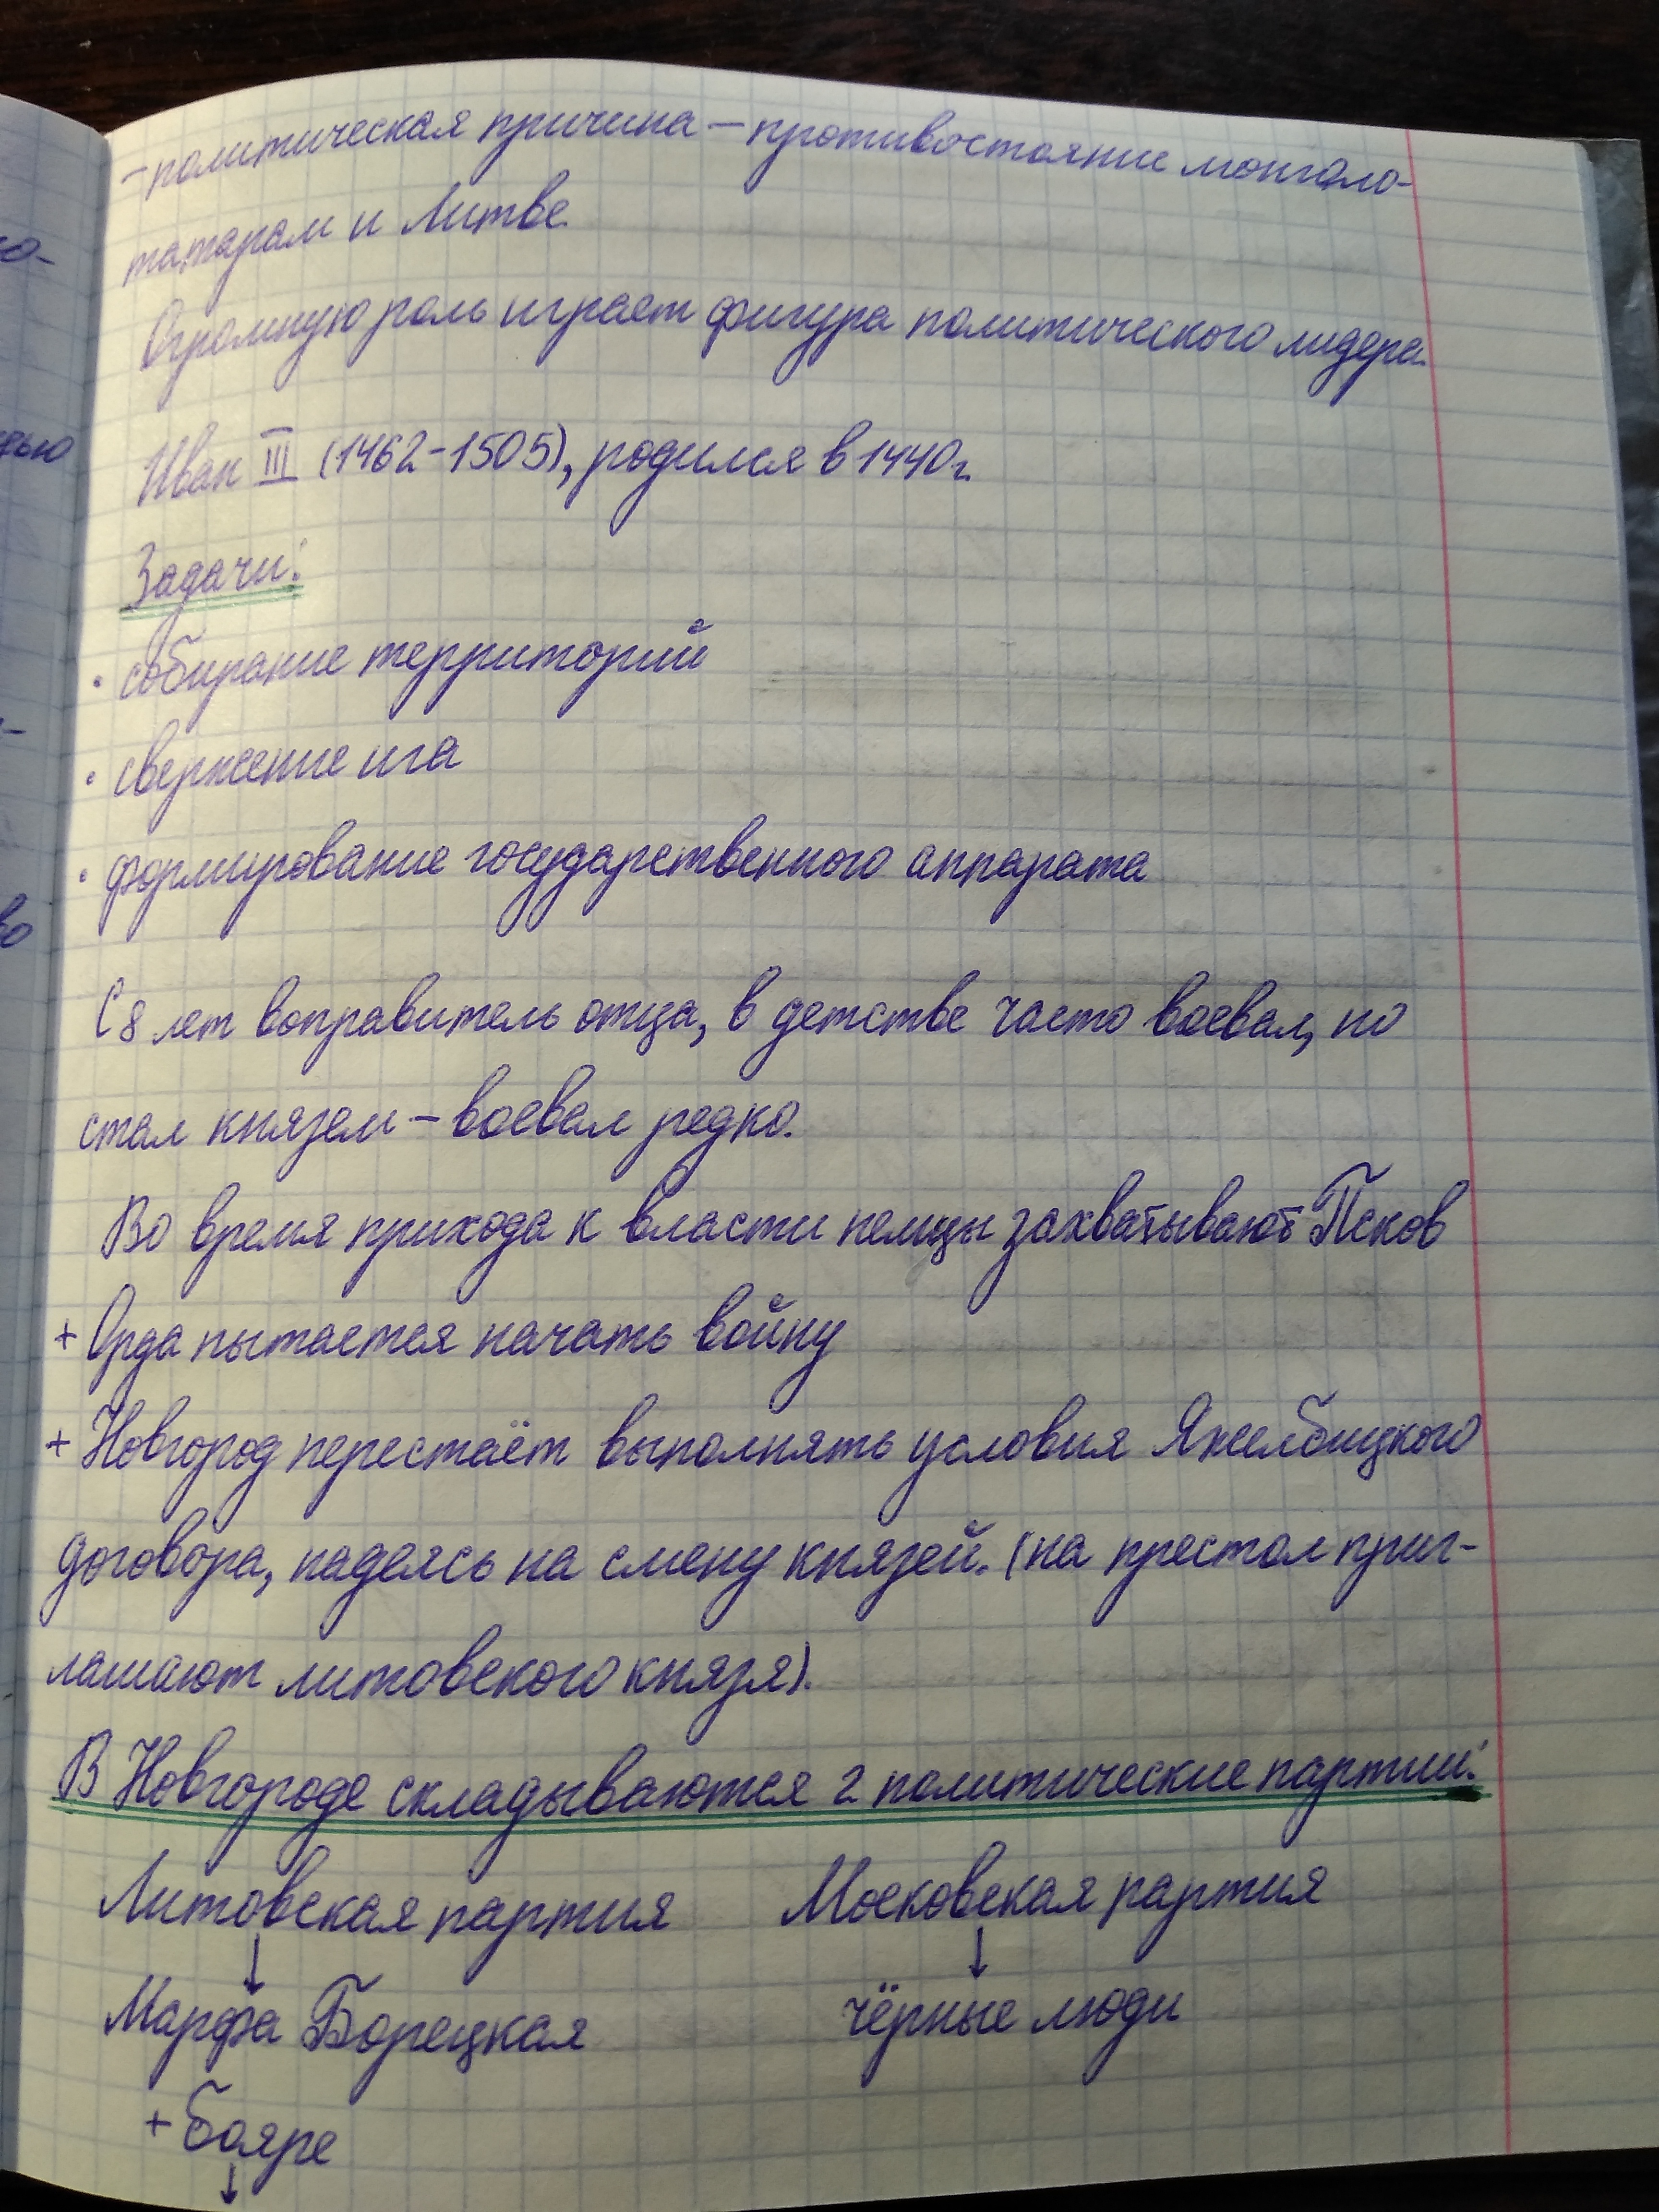 - политическая причина – противостояние монголо-
татарам и Литве.
Огромную роль играет фигура политического лидера.
Иван III (1462-1505), родился в 1440 г.
Задачи:
· собирание территорий
· свержение ига
· формирование государственного аппарата
С 8 лет воправитель отца, в детстве часто воевал, но
стал князем – воевал редко.
Во время прихода к власти немцы захватывают Псков
+ Орда пытается начать войну
+ Новгород перестаёт выполнять условия Яжелбицкого
договора, надеясь на смену князей. (на престол приг-
лашают литовского князя).
В Новгороде складываются 2 политические партии:
Литовская партия Московская партия
↓ ↓
Марфа Борецкая чёрные люди
+ бояре
↓